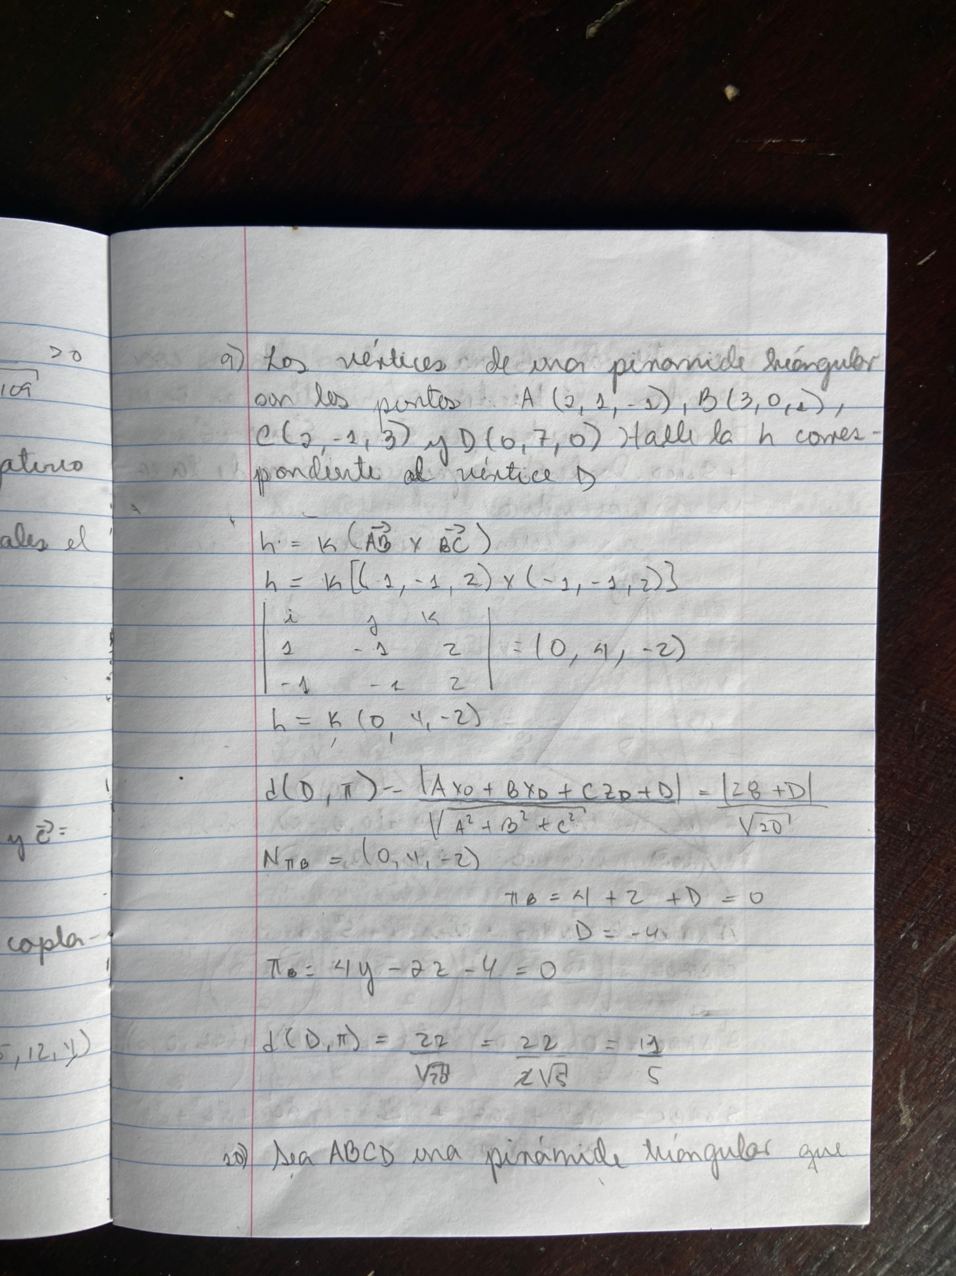 >0
109
ativo
ales el
y c⃗ =
copla-
5, 12, 4)
9) Los vértices de una pirámide triángular
son los puntos A (2, 1, -1), B (3, 0, 1),
C(2, -1, 3) y D(0, 7, 0) Halle la h corres-
pondiente al vértice D
h = K (AB⃗ x BC⃗)
h = K[(1, -1, 2) x (-1, -1, 2)]
| i j k |
| 1 -1 2 | = (0, 4, -2)
| -1 -1 2 |
h = K (0, 4, -2)
d(D, π) = |AxD + BxD + CzD + D| / √A² + B² + C² = |28 + D| / √20
NπB = (0, 4, -2)
πB = 4 + 2 + D = 0
D = -4
πB = 4y - 2z - 4 = 0
d(D, π) = 22/√20 = 22/2√5 = 11/5
10) Sea ABCD una pirámide triángular que